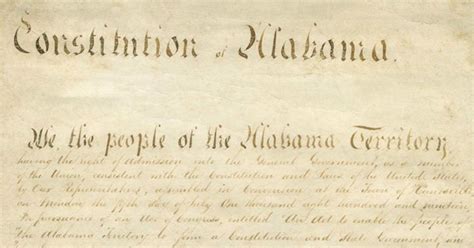 Constitution of Alabama.
We, the people of the Alabama Territory,
having the right of admission into the General Government, as a member
of the Union, consistent with the Constitution and Laws of the United States,
by Our Representatives, assembled in Convention at the Town of Huntsville
on Monday the fifth day of July One thousand eight hundred and nineteen
In pursuance of an Act of Congress, entitled "An Act to enable the people of
The Alabama Territory to form a Constitution and State Government, and